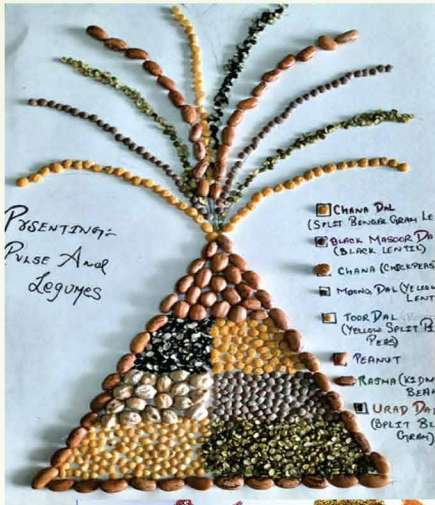 PRSENTING:-
PULSE AND
LEGUMES
CHANA DAL
(SPLIT BENGER GRAM LE
BLACK MASOOR DA
(BLACK LENTIL)
CHANA (CHICKPEAS
MOONG DAL (YELLOW
LENT
TOOR DAL
(YELLOW SPLIT P
PEAS)
PEANUT
RAJMA (KIDN
BEAN
URAD DAL
(SPLIT BL
GRAM)